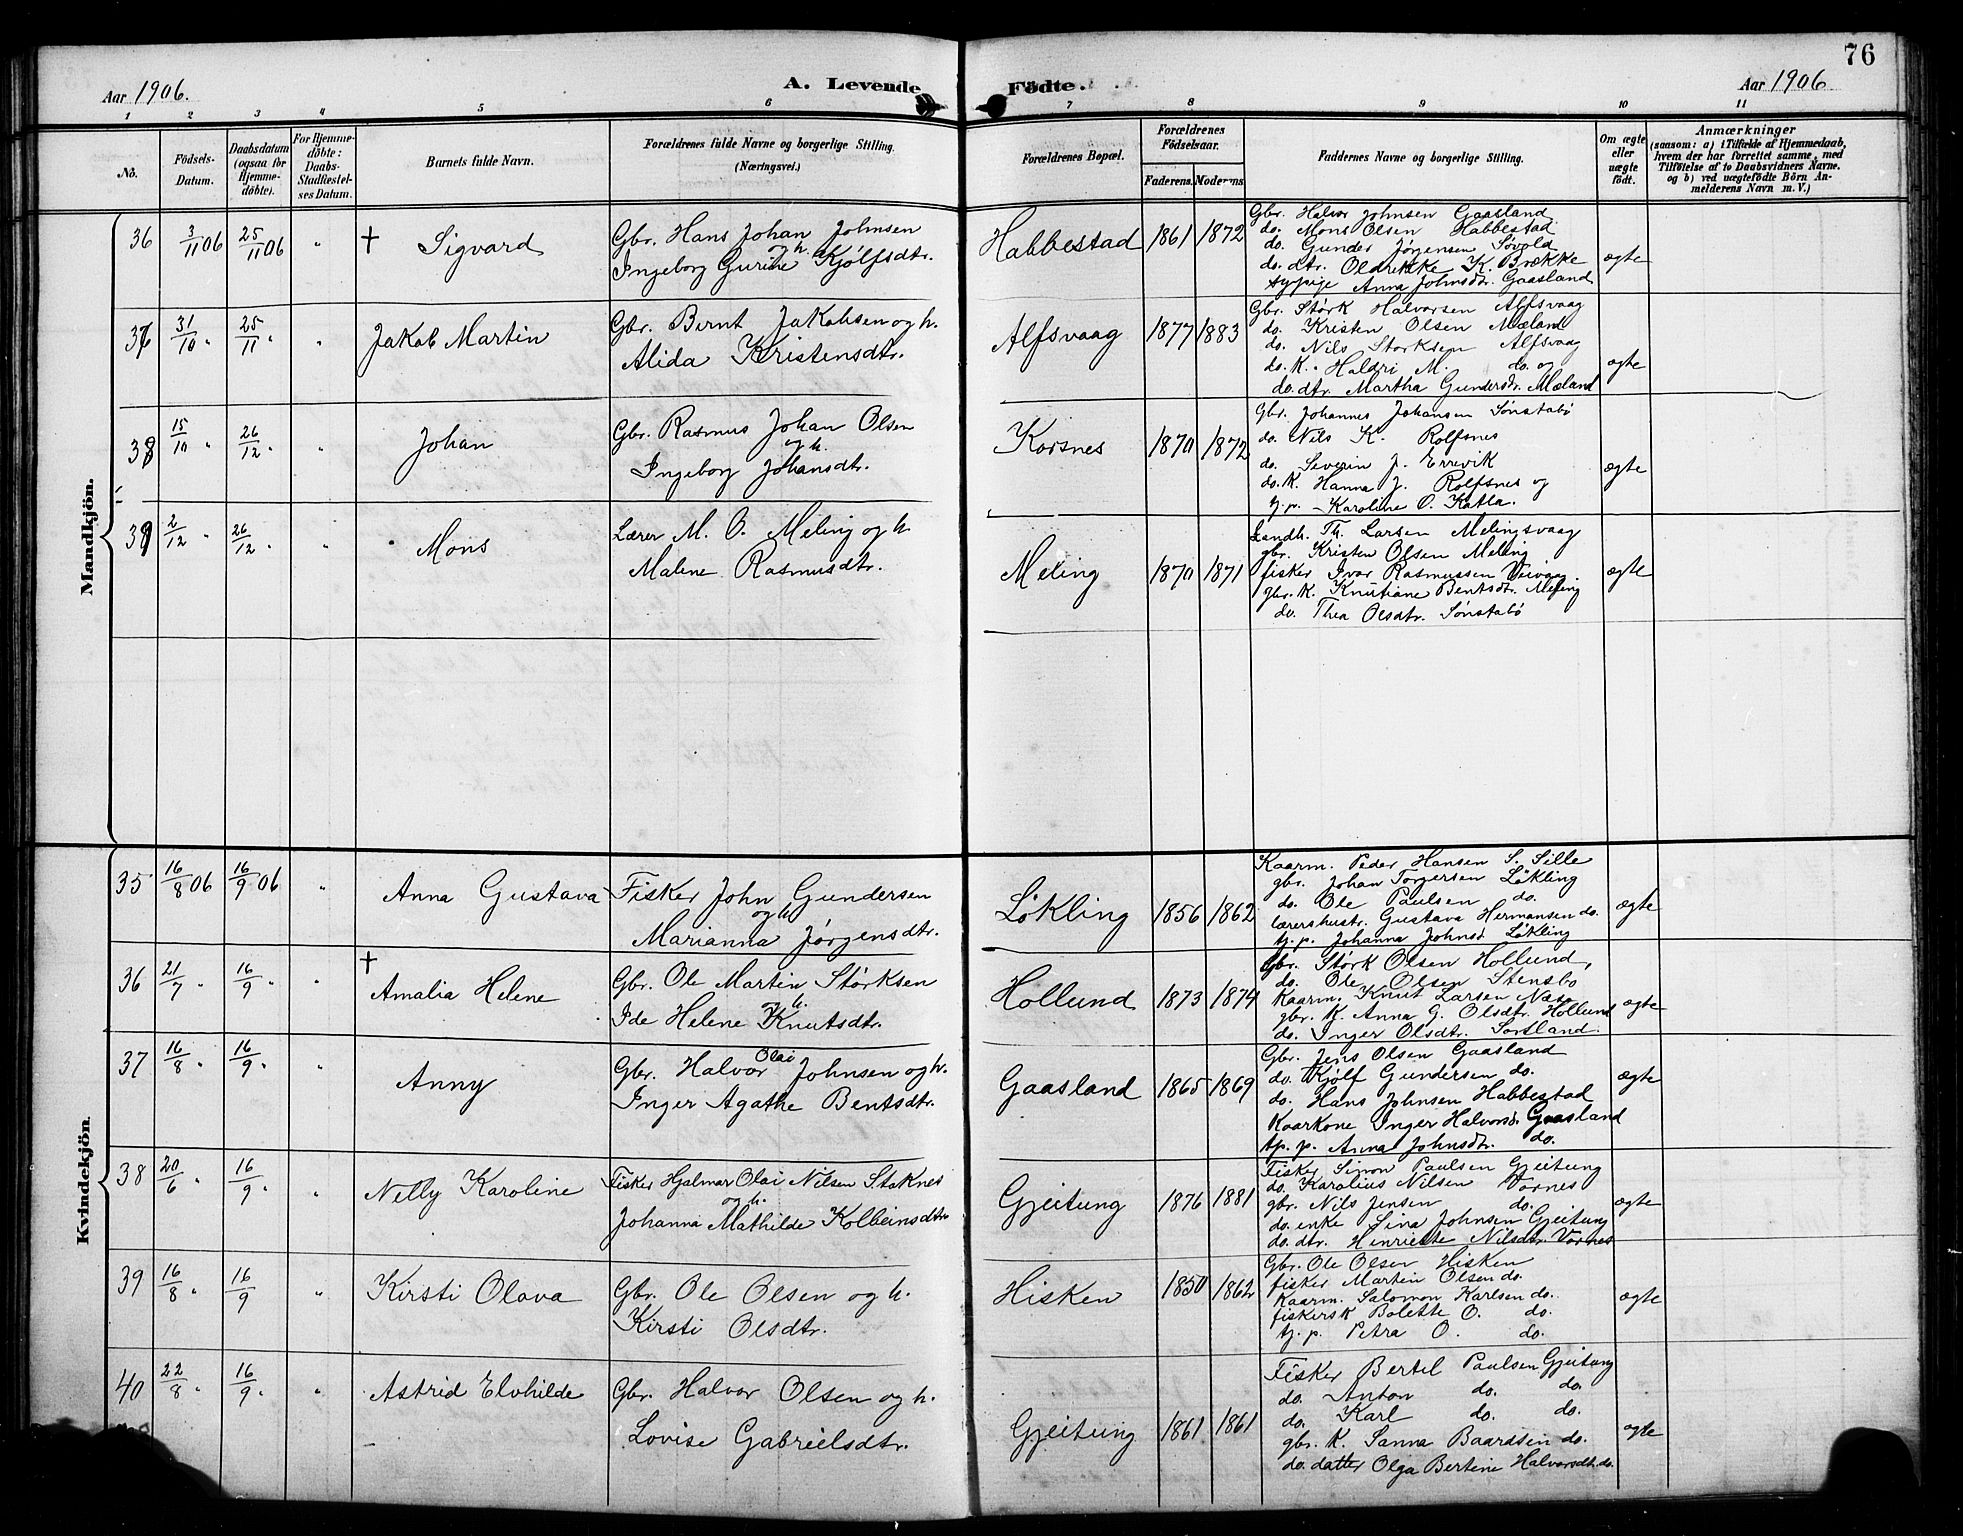 76
Aar 1906.
A. Levende Födte.
Aar 1906
1 2 3 4 5 6 7 8 9 10 11
No.
Födsels-Datum.
Daabsdatum (ogsaa for Hjemmedöbte).
For Hjemmedöbte: Daabs-Stadfæstelses Datum.
Barnets fulde Navn.
Forældrenes fulde Navne og borgerlige Stilling. (Næringsvei.)
Forældrenes Bopæl.
Forældrenes Födselsaar.
Faderens. Moderens.
Faddernes Navne og borgerlige Stilling.
Om ægte eller uægte födt.
Anmærkninger
(saasom: a) i Tilfælde af Hjemmedaab, hvem der har forrettet samme, med Tilföielse af to Daabsvidners Navne. og b) ved uægtefödte Börn Anmelderens Navn m. V.)
Mandkjön.
36 3/11 06 25/11 06 " † Sigvard
Gbr. Hans Johan Johnsen
og h.
Ingeborg Gurine Kjølfsdtr.
Habbestad 1861 1872
Gbr. Halvor Johnsen Gaasland
do. Mons Olsen Habbestad
do. Gunder Jørgensen Søvold
do. dtr. Olarikke K. Brække
sypige Anna Johnsdtr. Gaasland
ægte
37 31/10 " 25/11 " " Jakob Martin
Gbr. Bernt Jakobsen og h.
Alida Kristensdtr.
Alfsvaag 1877 1883
Gbr. Størk Halvorsen Alfsvaag
do. Kristen Olsen Mæland
do. Nils Størksen Alfsvaag
do. K. Haldri M. do. og
do. dtr. Martha Gundersdr. Mæland
ægte
38 15/10 " 26/12 " " Johan
Gbr. Rasmus Johan Olsen
og h.
Ingeborg Johansdtr.
Korsnes 1870 1872
Gbr. Johannes Johansen Sønstabø
do. Nils K. Rolfsnes
do. Severin J. Errevik
do. K. Hanna J. Rolfsnes og
tj. p. Karoline O. Katla.
ægte
39 2/12 " 26/12 " " Mons
Lærer M. O. Meling og h.
Malene Rasmusdtr.
Meling 1870 1871
Landh. Th. Larsen Melingsvaag
gbr. Kristen Olsen Meling
fisker Ivar Rasmussen
gbr. K. Knutiane Bentsdtr. Meling
do. Thea Olsdtr. Sønstabø
ægte
Kvindekjön.
35 16/8 06 16/9 06 " Anna Gustava
Fisker John Gundersen
og h.
Marianna Jørgensdtr.
Løkling 1856 1862
Kaarm. Peder Hansen S. Sille
gbr. Johan Torgersen Løkling
do. Ole Paulsen do.
lærershustr. Gustava Hermansen do.
tj. p. Johanna Johnsd. Løkling
ægte
36 21/7 " 16/9 " " † Amalia Helene
Gbr. Ole Martin Størksen
og h.
Ide Helene Knutsdtr.
Hollund 1873 1874
Gbr. Størk Olsen Hollund,
do. Ole Olsen Stensbø
Kaarm. Knut Larsen Næse
gbr. K. Anna G. Olsdtr. Hollund
do. Inger Olsdtr. Sortland.
ægte
37 16/8 " 16/9 " " Anny
Gbr. Halvor Olai Johnsen og h.
Inger Agathe Bentsdtr.
Gaasland 1865 1869
Gbr. Jens Olsen Gaasland
do. Kjølf Gundersen do.
do. Hans Johnsen Habbestad
Kaarkone Inger Halvorsd. Gaasland
tp. p. Anna Johnsdtr. do.
ægte
38 20/6 " 16/9 " " Nelly Karoline
Fisker Hjalmar Olai Nilsen Stoknes
og h.
Johanna Mathilde Kolbeinsdtr
Gjeitung 1876 1881
Fisker Simon Paulsen Gjeitung
do. Karolius Nilsen Vornes
gbr. Nils Jensen do.
do. enke Sina Johnsen Gjeitung
do. dtr. Henriette Nilsdtr. Vornes
ægte
39 16/8 " 16/9 " Kirsti Olava
Gbr. Ole Olsen og h.
Kirsti Olsdtr.
Hisken 1850 1862
Gbr. Ole Olsen Hisken
fisker Martin Olsen do.
Kaarm. Salomon Karlsen do.
fiskersk Bolette O. do.
tj. p. Petra O. do.
ægte
40 22/8 " 16/9 " " Astrid Elvhilde
Gbr. Halvor Olsen og h.
Lovise Gabrielsdtr.
Gjeitung 1861 1861
Fisker Bertel Paulsen Gjeitung
do. Anton do. do.
do. Karl do. do.
gbr. K. Sanna Baardsen do.
do. datter Olga Bertine Halvorsdt. do.
ægte